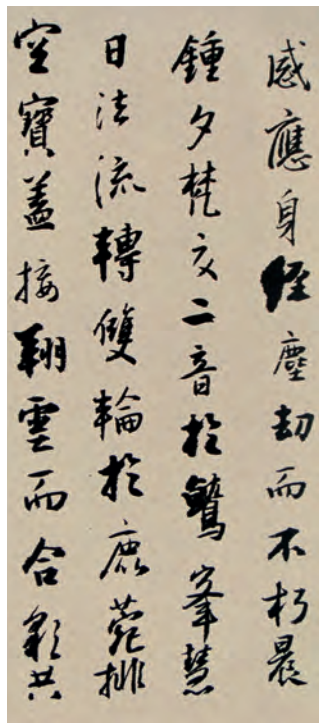 感應身經塵劫而不朽晨
鍾夕梵交二音於鷲峯慧
日法流轉雙輪於鹿菀排
空寶蓋接翔雲而合彩共